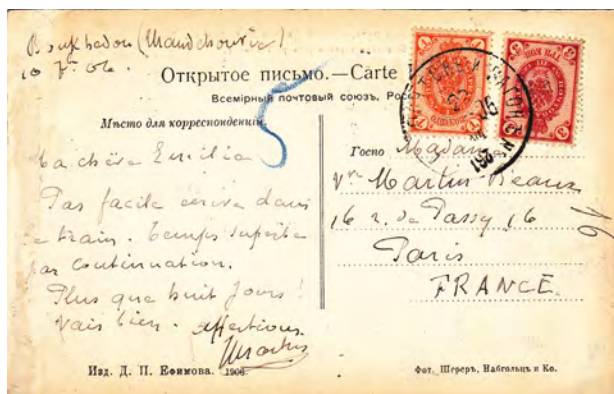 Boukhedou (Mandchourie)
Открытое письмо.—Carte
Всемірный почтовый союзъ.
Мѣсто для корреспонденціи.
Ma chère Emilia
Pas facile écrire dans
le train. Temps superbe
par continuation.
Plus que huit jours !
Vais bien. affections.
Изд. Д. П. Ефимова. 1906.
5
Госпо Madame
Vve Martin
16 r. de Passy 16
Paris
FRANCE.
16
Фот. Шереръ, Набгольцъ и Ко.